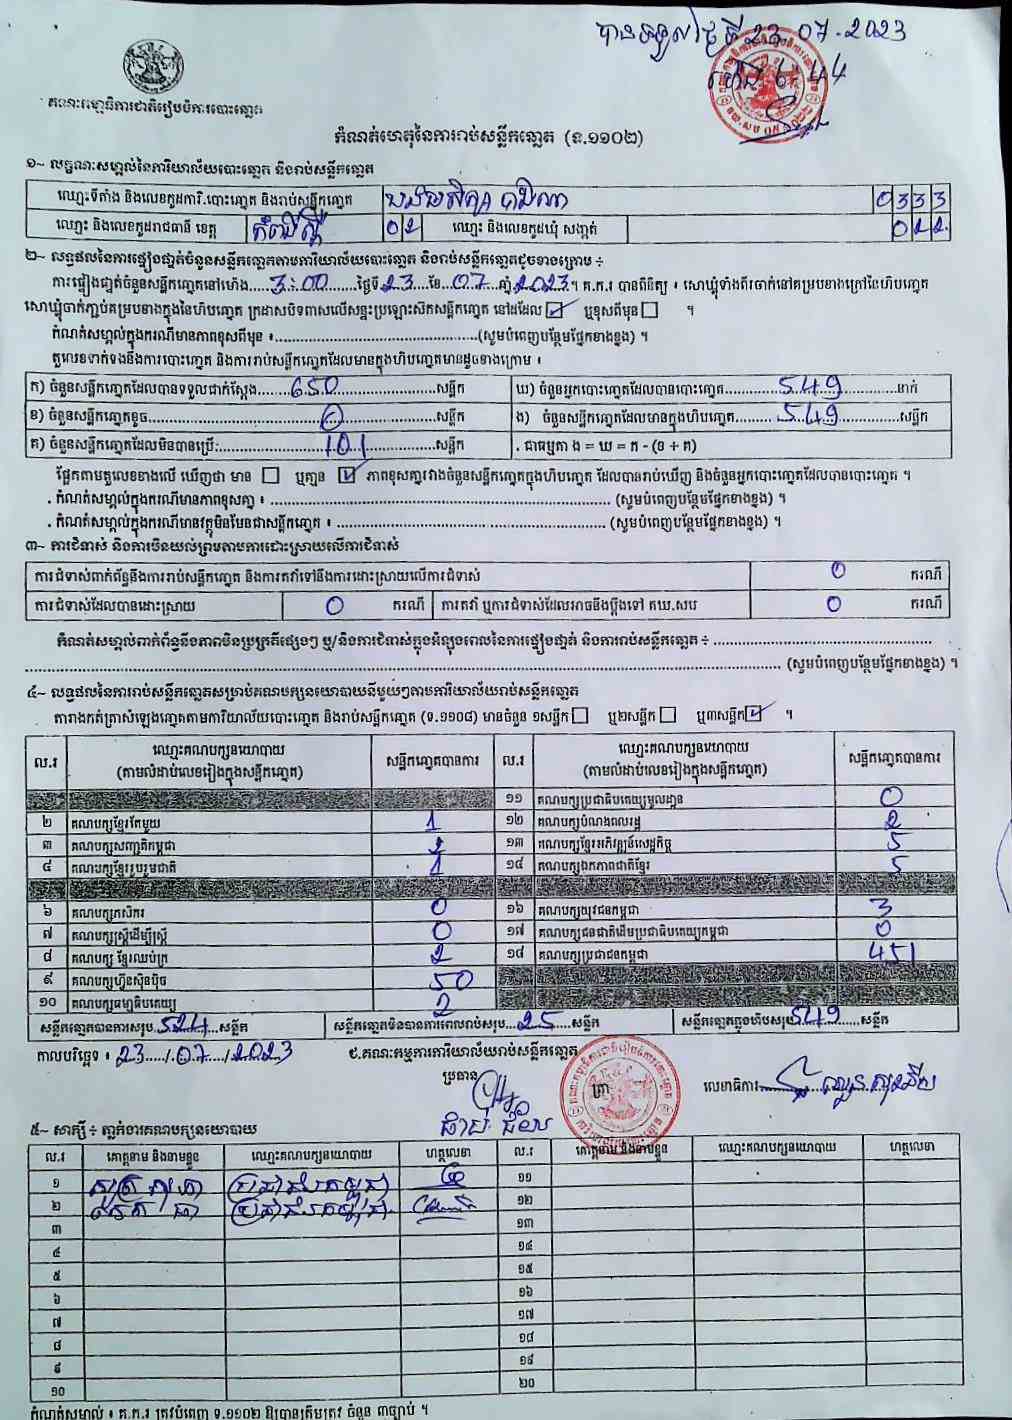 បានទទួលថ្ងៃទី 23. 07. 2023
ម៉ោង 6:44
គណៈកម្មាធិការជាតិរៀបចំការបោះឆ្នោត
កំណត់ហេតុនៃការរាប់សន្លឹកឆ្នោត (ទ.១១០២)
១~ លក្ខណៈសម្គាល់នៃការិយាល័យបោះឆ្នោត និងរាប់សន្លឹកឆ្នោត
ឈ្មោះទីតាំង និងលេខកូដការិ.បោះឆ្នោត និងរាប់សន្លឹកឆ្នោត 0333
ឈ្មោះ និងលេខកូដរាជធានី ខេត្ត 02 ឈ្មោះ និងលេខកូដឃុំ សង្កាត់ 022
២~ លទ្ធផលនៃការផ្ទៀងផ្ទាត់ចំនួនសន្លឹកឆ្នោតតាមការិយាល័យបោះឆ្នោត និងរាប់សន្លឹកឆ្នោតដូចខាងក្រោម ÷
ការផ្ទៀងផ្ទាត់ចំនួនសន្លឹកឆ្នោតនៅម៉ោង 3:00 ថ្ងៃទី 23 ខែ 07 ឆ្នាំ 2023 ។ គ.ក.រ បានពិនិត្យ ៖ សោឃ្លុំទាំងពីរចាក់នៅគម្របខាងក្រៅនៃហិបឆ្នោត
សោឃ្លុំចាក់ភ្ជាប់គម្របខាងក្នុងនៃហិបឆ្នោត ក្រដាសបិទពាសលើសន្ទះប្រឡោះស៊កសន្លឹកឆ្នោត នៅដដែល ☑ ឬខុសពីមុន ☐ ។
កំណត់សម្គាល់ក្នុងករណីមានភាពខុសពីមុន ៖ (សូមបំពេញបន្ថែមផ្នែកខាងខ្នង) ។
តួលេខទាក់ទងនឹងការបោះឆ្នោត និងការរាប់សន្លឹកឆ្នោតដែលមានក្នុងហិបឆ្នោតមានដូចខាងក្រោម ៖
ក) ចំនួនសន្លឹកឆ្នោតដែលបានទទួលជាក់ស្តែង 650 សន្លឹក ឃ) ចំនួនអ្នកបោះឆ្នោតដែលបានបោះឆ្នោត 549 នាក់
ខ) ចំនួនសន្លឹកឆ្នោតខូច 0 សន្លឹក ង) ចំនួនសន្លឹកឆ្នោតដែលមានក្នុងហិបឆ្នោត 549 សន្លឹក
គ) ចំនួនសន្លឹកឆ្នោតដែលមិនបានប្រើ: 101 សន្លឹក . ជាធម្មតា ង = ឃ = ក - (ខ + គ)
ផ្អែកតាមតួលេខខាងលើ ឃើញថា មាន ☐ ឬគ្មាន ☑ ភាពខុសគ្នារវាងចំនួនសន្លឹកឆ្នោតក្នុងហិបឆ្នោត ដែលបានរាប់ឃើញ និងចំនួនអ្នកបោះឆ្នោតដែលបានបោះឆ្នោត ។
. កំណត់សម្គាល់ក្នុងករណីមានភាពខុសគ្នា ៖ (សូមបំពេញបន្ថែមផ្នែកខាងខ្នង) ។
. កំណត់សម្គាល់ក្នុងករណីមានវត្ថុមិនមែនជាសន្លឹកឆ្នោត ៖ (សូមបំពេញបន្ថែមផ្នែកខាងខ្នង) ។
៣~ ការជំទាស់ និងការមិនយល់ព្រមតាមការដោះស្រាយលើការជំទាស់
ការជំទាស់ពាក់ព័ន្ធនឹងការរាប់សន្លឹកឆ្នោត និងការតវ៉ាទៅនឹងការដោះស្រាយលើការជំទាស់ 0 ករណី
ការជំទាស់ដែលបានដោះស្រាយ 0 ករណី ការតវ៉ា ឬការជំទាស់ដែលអាចនឹងប្តឹងទៅ គឃ.សប 0 ករណី
កំណត់សម្គាល់ពាក់ព័ន្ធនឹងភាពមិនប្រក្រតីផ្សេងៗ ឬ/និងការជំទាស់ក្នុងអំឡុងពេលនៃការផ្ទៀងផ្ទាត់ និងការរាប់សន្លឹកឆ្នោត ÷
(សូមបំពេញបន្ថែមផ្នែកខាងខ្នង) ។
៤~ លទ្ធផលនៃការរាប់សន្លឹកឆ្នោតសម្រាប់គណបក្សនយោបាយនីមួយៗតាមការិយាល័យរាប់សន្លឹកឆ្នោត
តារាងកត់ត្រាសំឡេងឆ្នោតតាមការិយាល័យបោះឆ្នោត និងរាប់សន្លឹកឆ្នោត (ទ.១១០៨) មានចំនួន ១សន្លឹក ☐ ឬ២សន្លឹក ☐ ឬ៣សន្លឹក ☑ ។
ល.រ ឈ្មោះគណបក្សនយោបាយ (តាមលំដាប់លេខរៀងក្នុងសន្លឹកឆ្នោត) សន្លឹកឆ្នោតបានការ ល.រ ឈ្មោះគណបក្សនយោបាយ (តាមលំដាប់លេខរៀងក្នុងសន្លឹកឆ្នោត) សន្លឹកឆ្នោតបានការ
១១ គណបក្សប្រជាធិបតេយ្យមូលដ្ឋាន 0
២ គណបក្សខ្មែរតែមួយ 1 ១២ គណបក្សបំណងពលរដ្ឋ 2
៣ គណបក្សសញ្ជាតិកម្ពុជា 2 ១៣ គណបក្សខ្មែរអភិវឌ្ឍន៍សេដ្ឋកិច្ច 5
៤ គណបក្សខ្មែររួបរួមជាតិ 1 ១៤ គណបក្សឯកភាពជាតិខ្មែរ 5
៦ គណបក្សកសិករ 0 ១៦ គណបក្សយុវជនកម្ពុជា 3
៧ គណបក្សស្ត្រីដើម្បីស្ត្រី 0 ១៧ គណបក្សជនជាតិដើមប្រជាធិបតេយ្យកម្ពុជា 0
៨ គណបក្ស ខ្មែរឈប់ក្រ 2 ១៨ គណបក្សប្រជាជនកម្ពុជា 451
៩ គណបក្សហ្វ៊ុនស៊ិនប៉ិច 50
១០ គណបក្សធម្មាធិបតេយ្យ 2
សន្លឹកឆ្នោតបានការសរុប 524 សន្លឹក សន្លឹកឆ្នោតមិនបានការពេលរាប់សរុប 25 សន្លឹក សន្លឹកឆ្នោតក្នុងហិបសរុប 549 សន្លឹក
កាលបរិច្ឆេទ ៖ 23 / 07 / 2023 ៩.គណៈកម្មការការិយាល័យរាប់សន្លឹកឆ្នោត
ប្រធាន ត្រា លេខាធិការ
៥~ សាក្សី ÷ ភ្នាក់ងារគណបក្សនយោបាយ
ល.រ គោត្តនាម និងនាមខ្លួន ឈ្មោះគណបក្សនយោបាយ ហត្ថលេខា ល.រ គោត្តនាម និងនាមខ្លួន ឈ្មោះគណបក្សនយោបាយ ហត្ថលេខា
១ ប្រជាជនកម្ពុជា ១១
២ ប្រជាជនកម្ពុជា ១២
៣ ១៣
៤ ១៤
៥ ១៥
៦ ១៦
៧ ១៧
៨ ១៨
៩ ១៩
១០ ២០
កំណត់សម្គាល់ ៖ គ.ក.រ ត្រូវបំពេញ ទ.១១០២ ឱ្យបានត្រឹមត្រូវ ចំនួន ៣ច្បាប់ ។